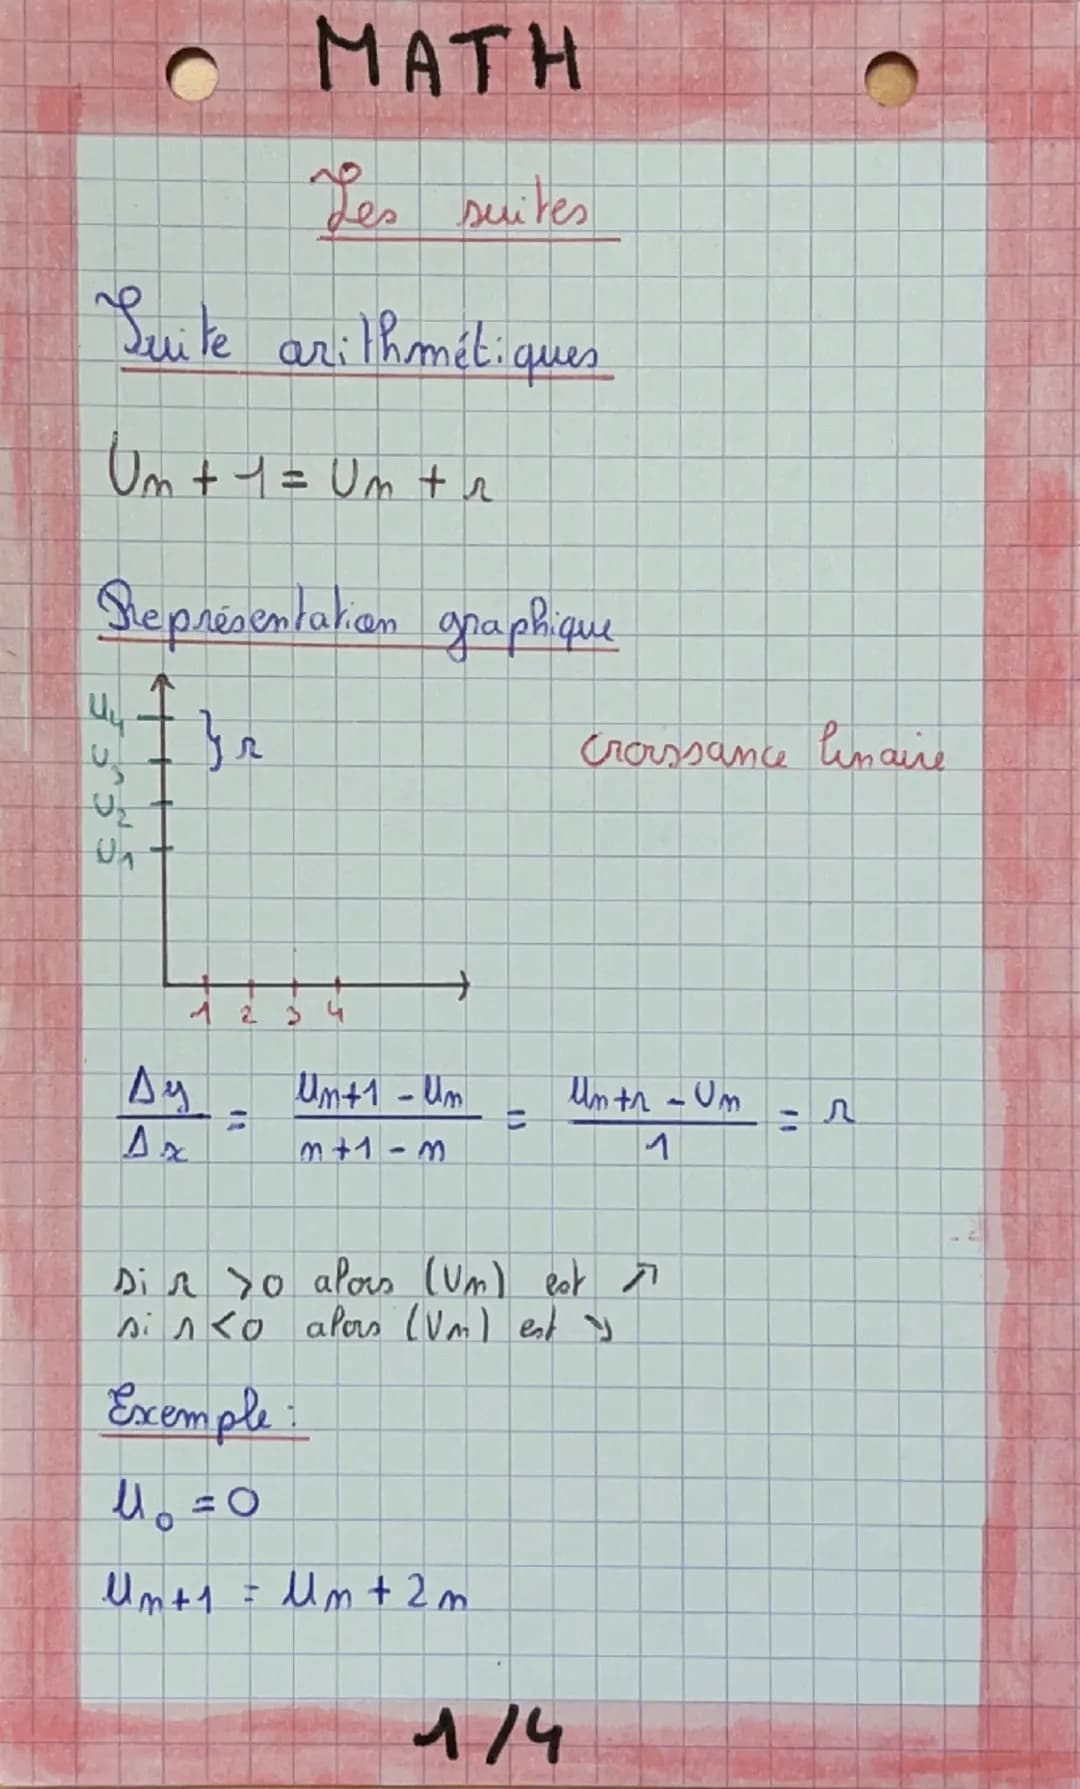 MATH
Les suites
Suite arithmétiques
Un + 1 = Un + r
Représentation graphique
U4
} r
U3
croissance linaire
U2
U1
1 2 3 4
Δy/Δx = Un+1 - Un / n+1 - n = Un+r - Un / 1 = r
si r >0 alors (Un) est ↗
si r <0 alors (Un) est ↘
Exemple :
U0 = 0
Un+1 = Un + 2n
1/4